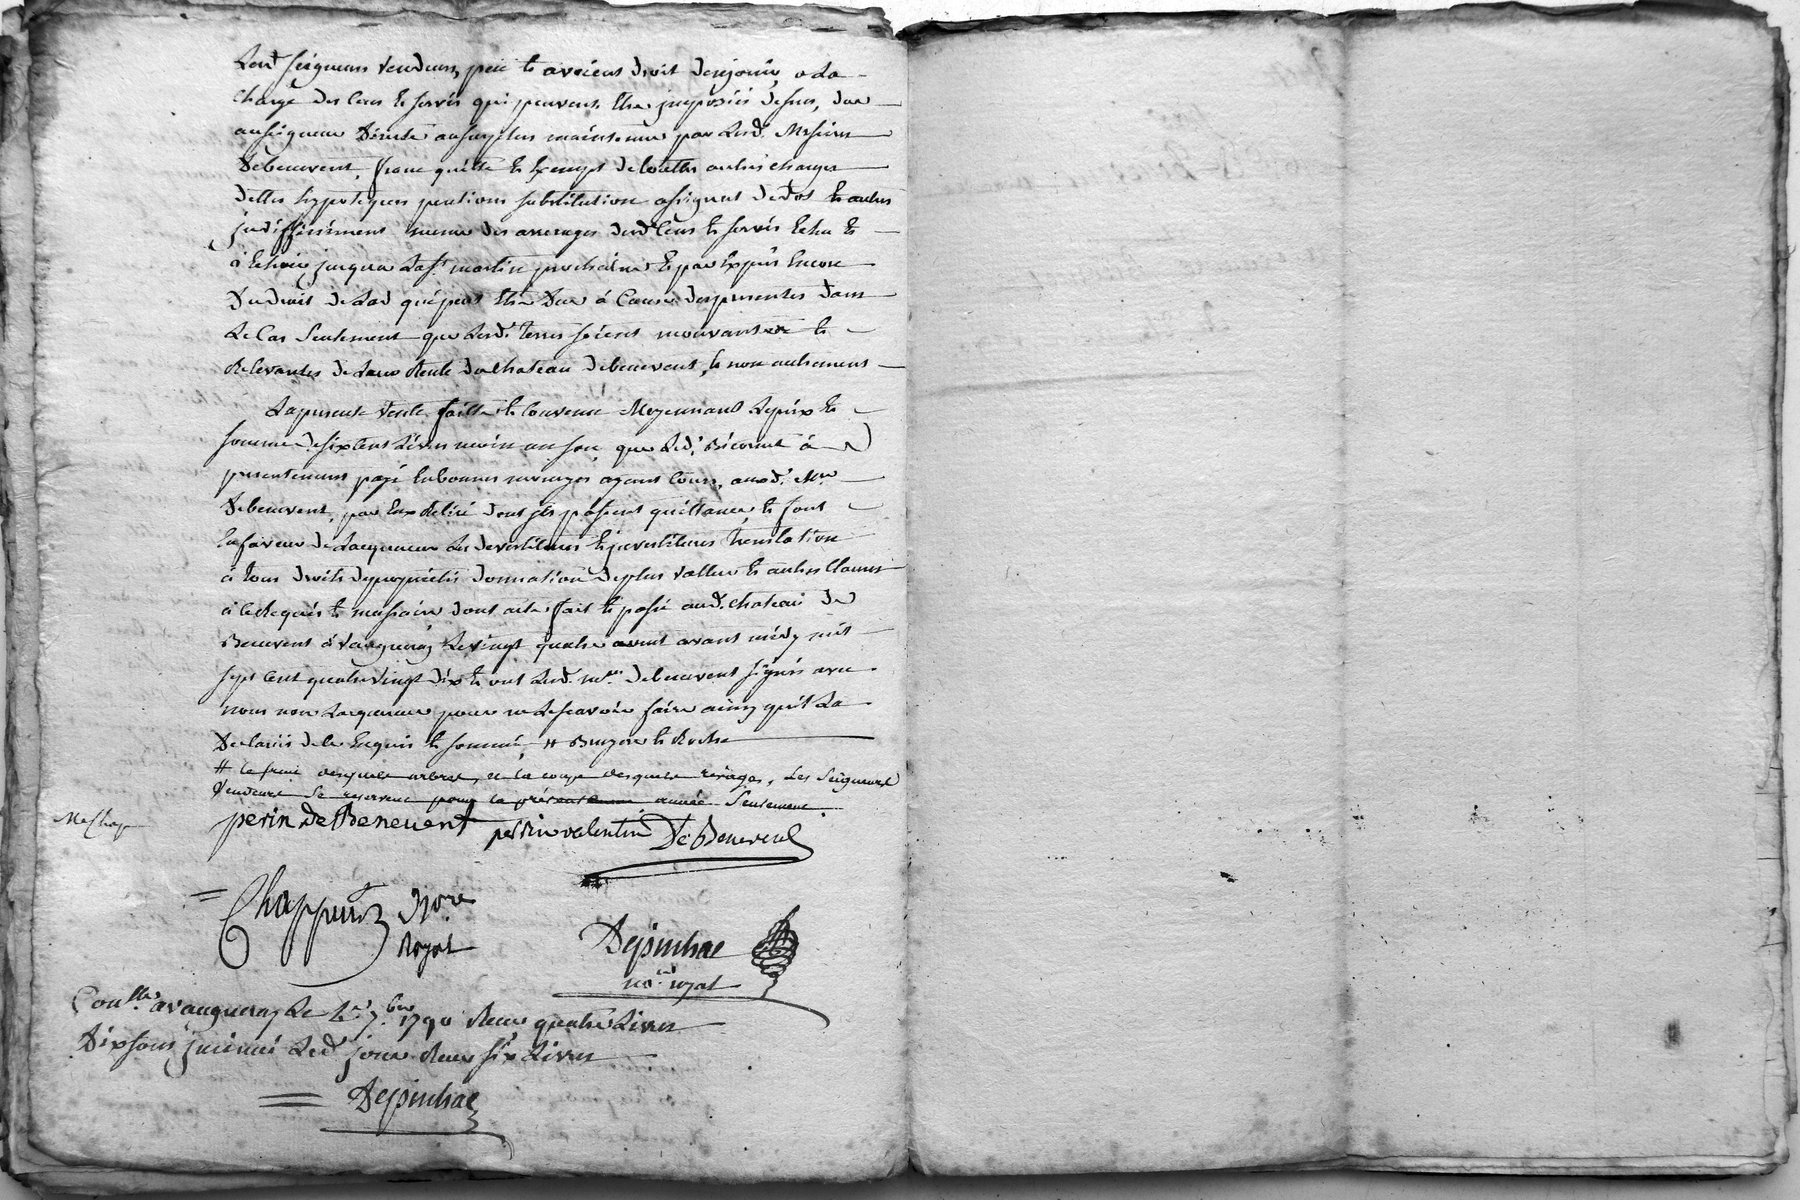 Lesd. seigneurs vendeurs, peu et avoient droit denjouir, a la
charge des cens et servis qui peuvent etre imposés dessus, due
au seigneur Direct au surplus maintenue par lesd. Messieurs
Debenevent, franc quitte et exempt de touttes autres charges
dettes hypoteques pentions substitution assignat de dot et autres
generallement mesme des arrerages desd. cens et servis echu et
à echoir jusqua la st martin prochaine et par exprès encore
du droit de lod qui peut etre due à cause des presentes dans
le cas seulement que lesd. terres soient mouvantes et
relevantes de la rente du chateau debenevent, et non autrement
La presente vente faitte et convenue moyennant le prix et
somme de six cent livres moin un sou, que led. Bicornet à
presentement payé en bonnes monoyes ayant cours, auxd. Mrs
Debenevent, par eux retiré dont ils passent quittance, et font
en faveur de lacquereur les devestitures et investitures translation
à tous droits de proprietés donnation de plus vallue et autres clauses
à ce requis et nessaire dont acte fait et passé aud. chateau de
Benevent à vaugneray le vingt quatre avant midy mil
sept cent quatre vingt dix et ont lesd. mrs. debenevent signés avec
nous non lacquereur pour ne le scavoir faire ainsy quil la
Declaré de ce enquis et sommé, # Bruyere et Roche
# le fruit desquels arbres, et la coupe desquels rivages, les seigneurs
vendeurs se reservent pour la présente année seulement
perin de Benevent perrin valentin De Benevent
Royal
Depinhac
no.re royal
Con.lle a vaugneray le 1er 7.bre 1790 Recu quatre livres
Dix sous insinué led. jour Recu six livres
Depinhac